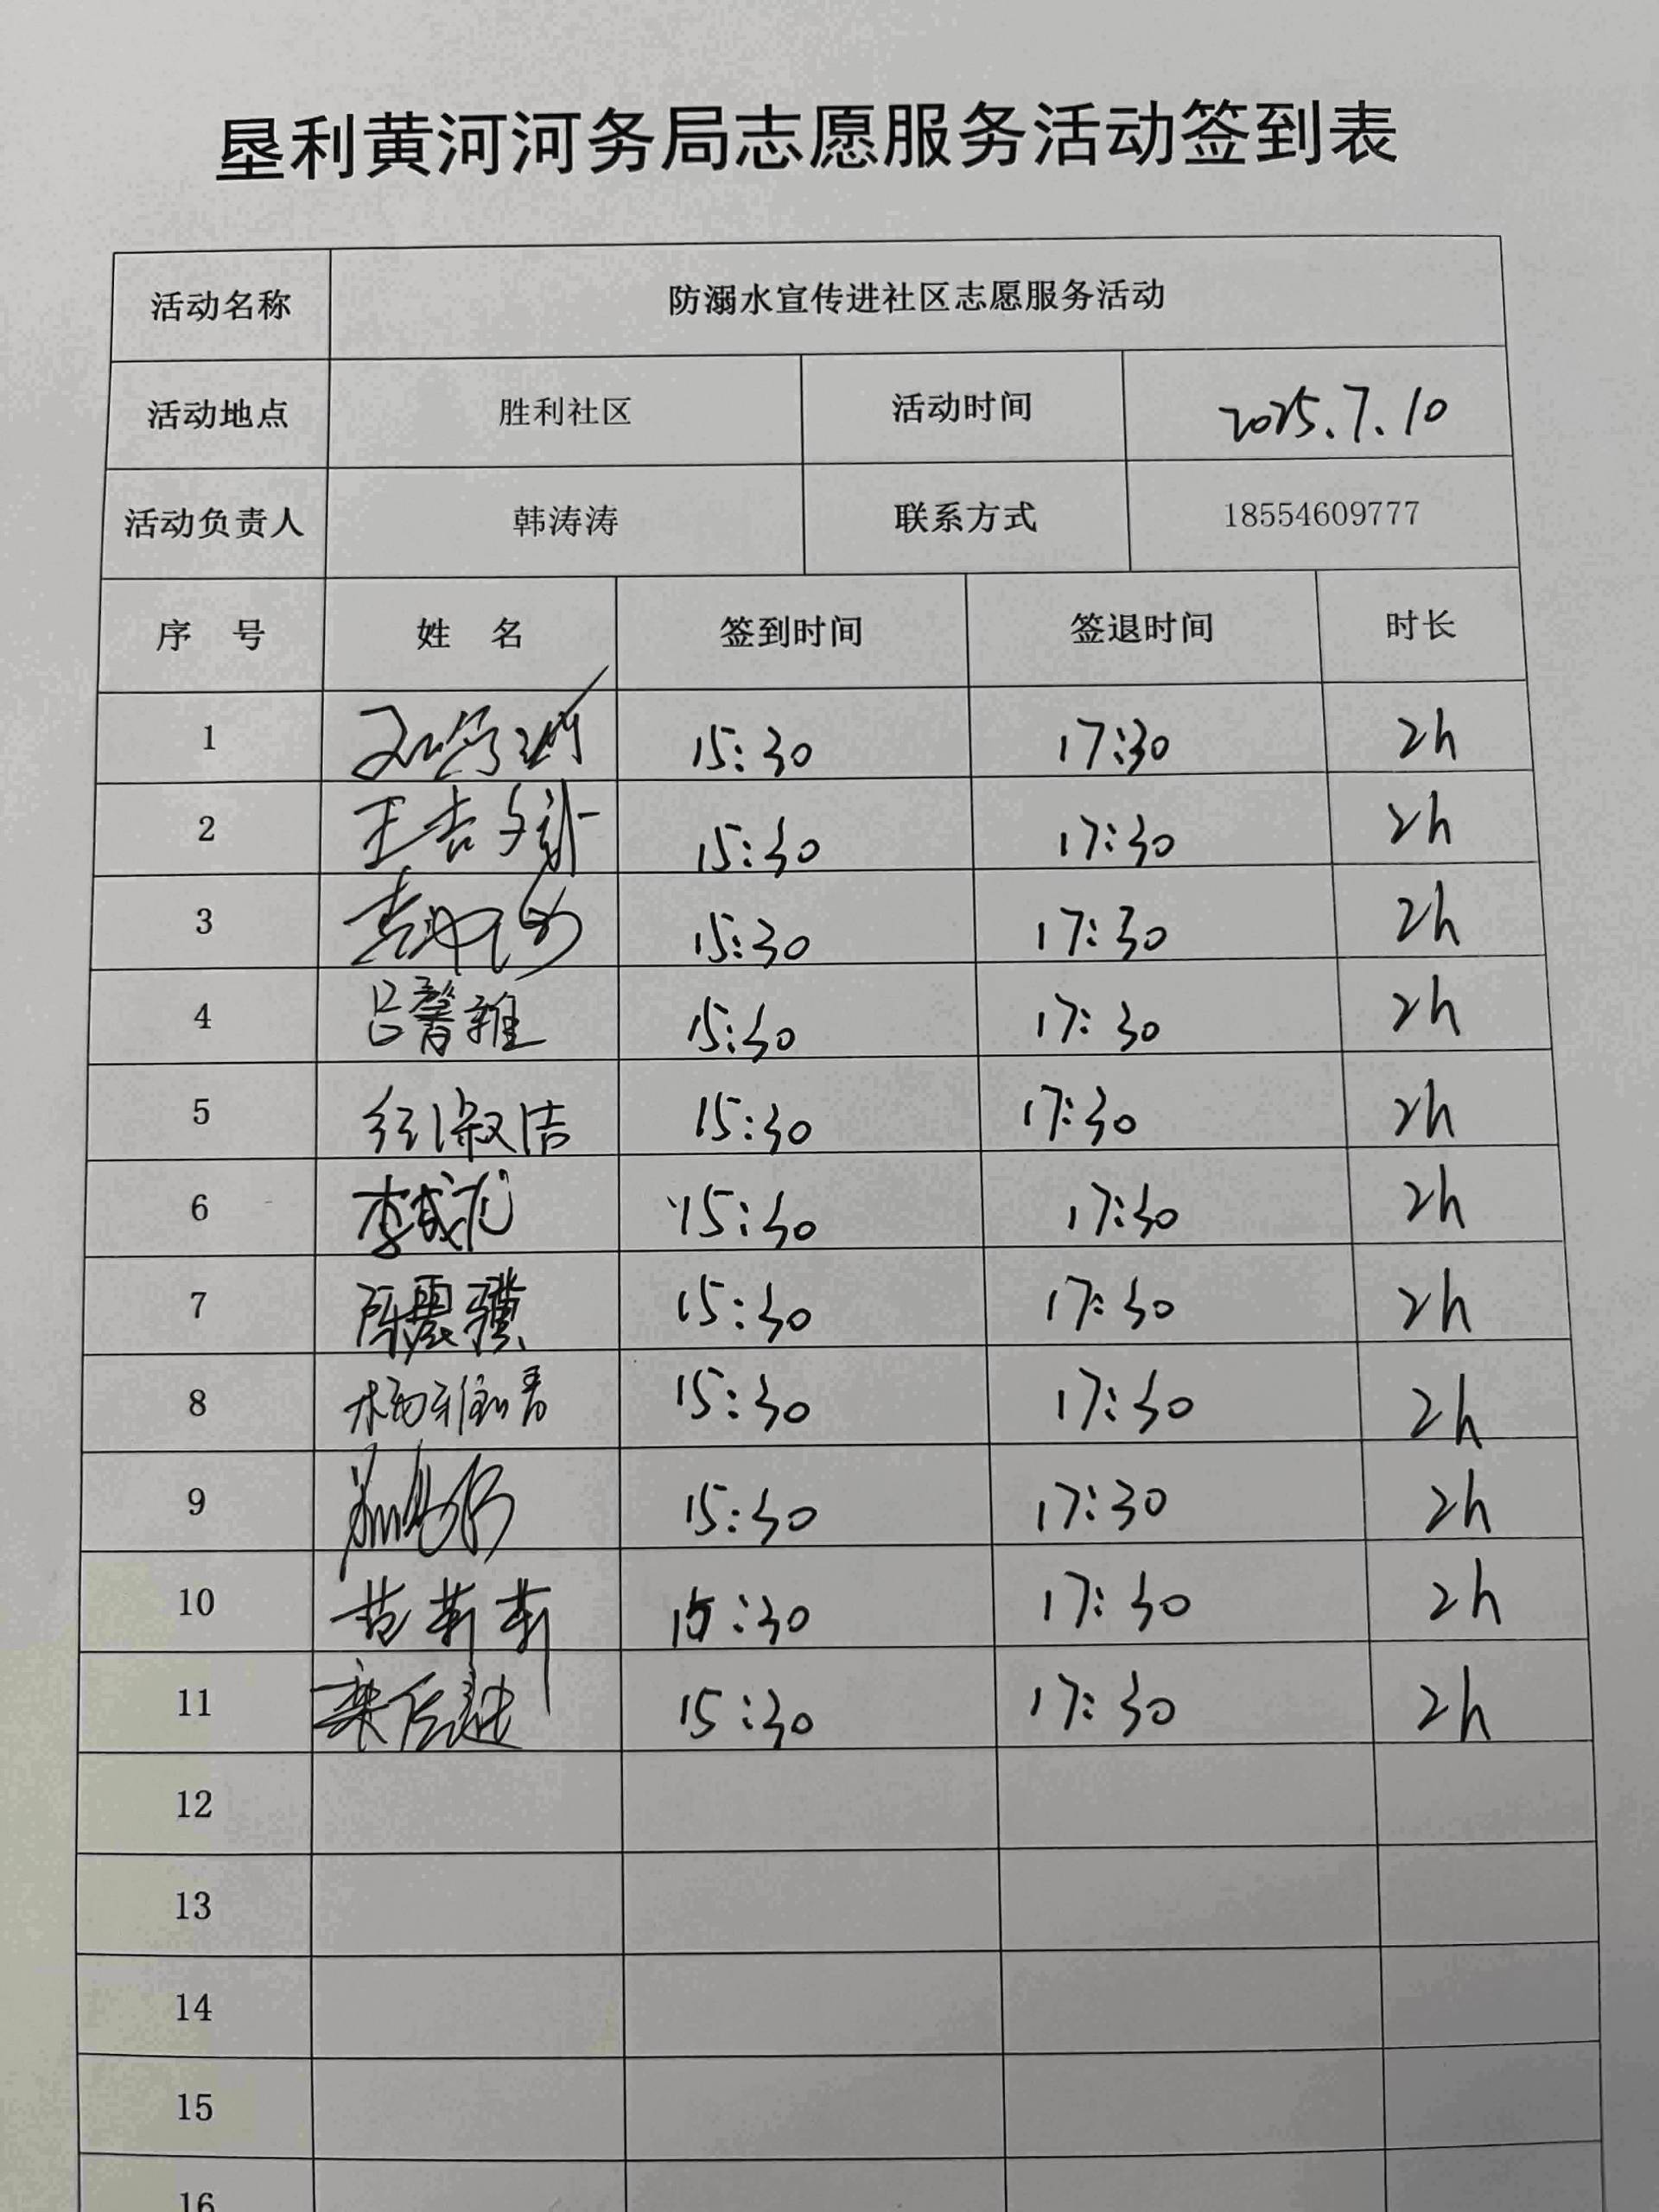 垦利黄河河务局志愿服务活动签到表
活动名称 防溺水宣传进社区志愿服务活动
活动地点 胜利社区 活动时间 2025.7.10
活动负责人 韩涛涛 联系方式 18554609777
序 号 姓 名 签到时间 签退时间 时长
1 15:30 17:30 2h
2 15:30 17:30 2h
3 15:30 17:30 2h
4 吕馨雅 15:30 17:30 2h
5 15:30 17:30 2h
6 李成龙 15:30 17:30 2h
7 陈震骥 15:30 17:30 2h
8 15:30 17:30 2h
9 15:30 17:30 2h
10 15:30 17:30 2h
11 15:30 17:30 2h
12
13
14
15
16